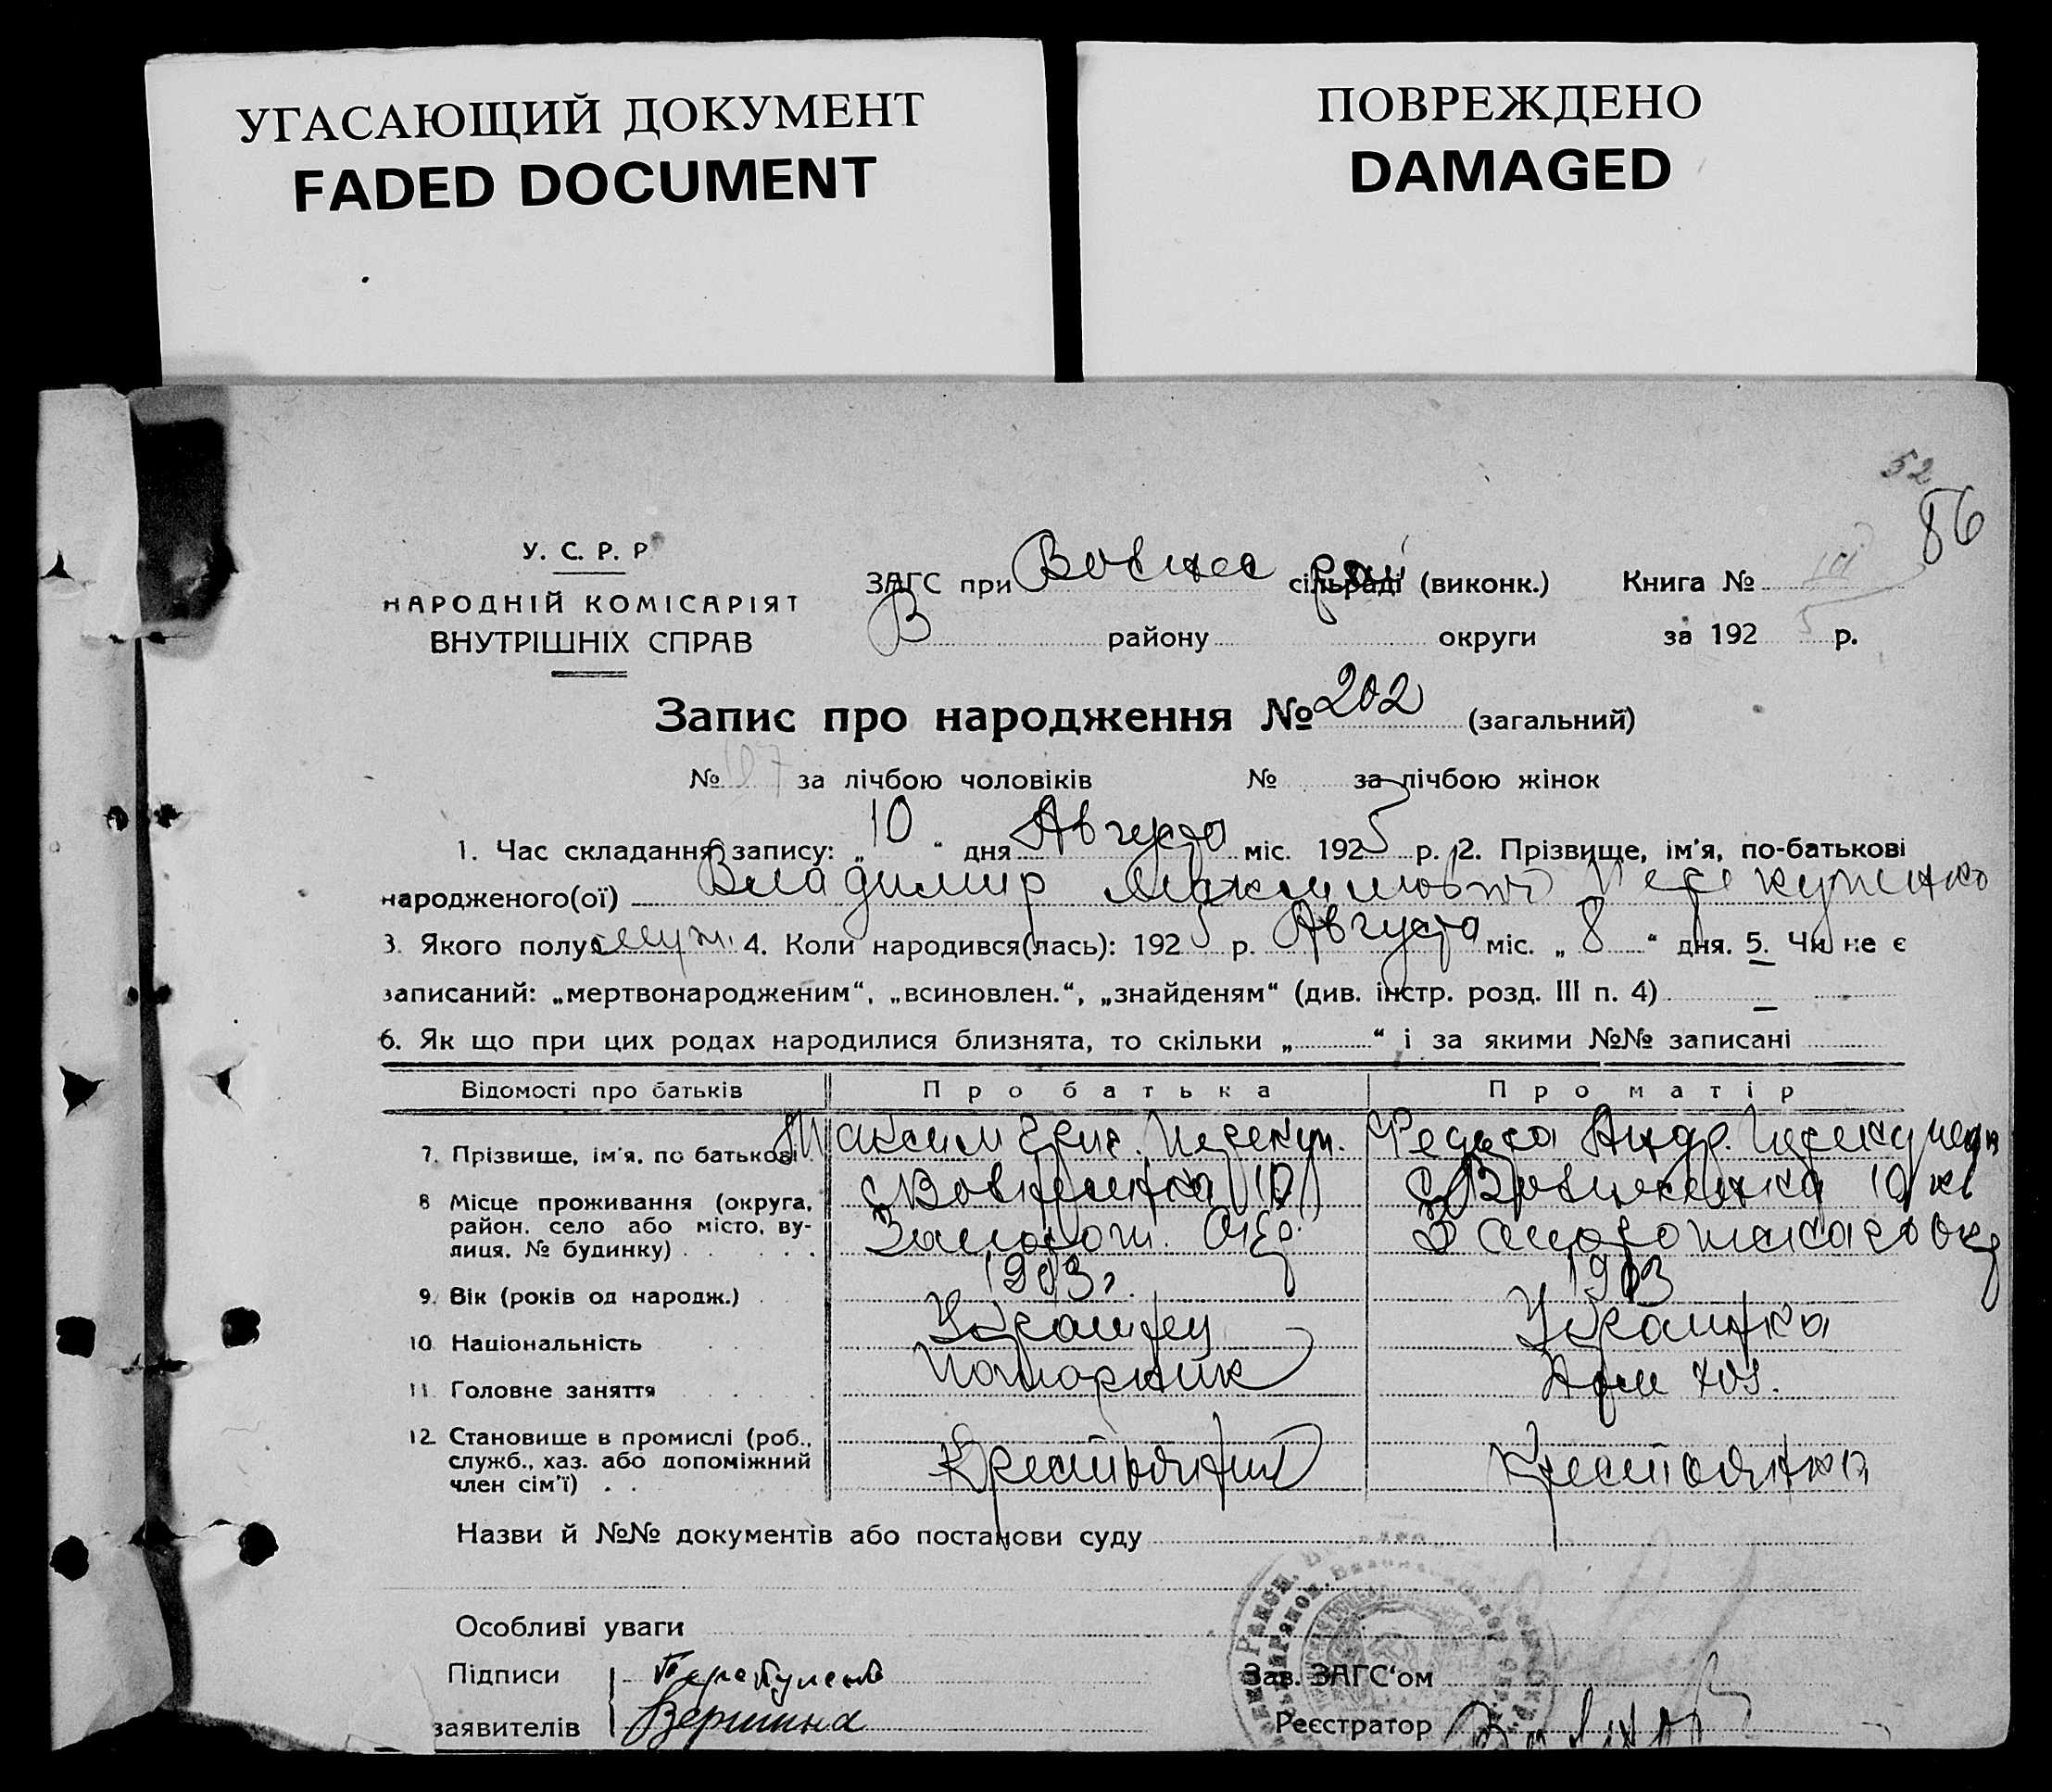 УГАСАЮЩИЙ ДОКУМЕНТ
FADED DOCUMENT
ПОВРЕЖДЕНО
DAMAGED
52
86
У. С. Р. Р
НАРОДНІЙ КОМІСАРІЯТ
ВНУТРІШНІХ СПРАВ
ЗАГС при Вознес сільраді (виконк.) Книга №
В району округи за 1925 р.
Запис про народження № 202 (загальний)
№ за лічбою чоловіків № за лічбою жінок
1. Час складання запису: „10“ дня Августа міс. 1925 р. 2. Прізвище, ім'я, по-батькові
народженого(ої) Владимир Максимович
3. Якого полу муж. 4. Коли народився(лась): 1925 р. Августа міс. „8“ дня. 5. Чи не є
записаний: „мертвонародженим“, „всиновлен.“, „знайденям“ (див. інстр. розд. III п. 4) —
6. Як що при цих родах народилися близнята, то скільки „ “ і за якими №№ записані
Відомості про батьків Про батька Про матір
7. Прізвище, ім'я, по батькові Максим Григ. Андр.
8 Місце проживання (округа,
район, село або місто, ву-
лиця, № будинку)
с Вознесенка 10 кв
Запорож. Окр. Запорожская окр
9. Вік (років од народж.) 1903 г. 1903
10 Національність Украинец Украинка
11 Головне заняття Дом хоз.
12 Становище в промислі (роб.,
служб., хаз. або допоміжний
член сім'ї)
Крестьянин Крестьянка
Назви й №№ документів або постанови суду
Особливі уваги
Підписи Зав. ЗАГС'ом
заявителів Вершина Реєстратор